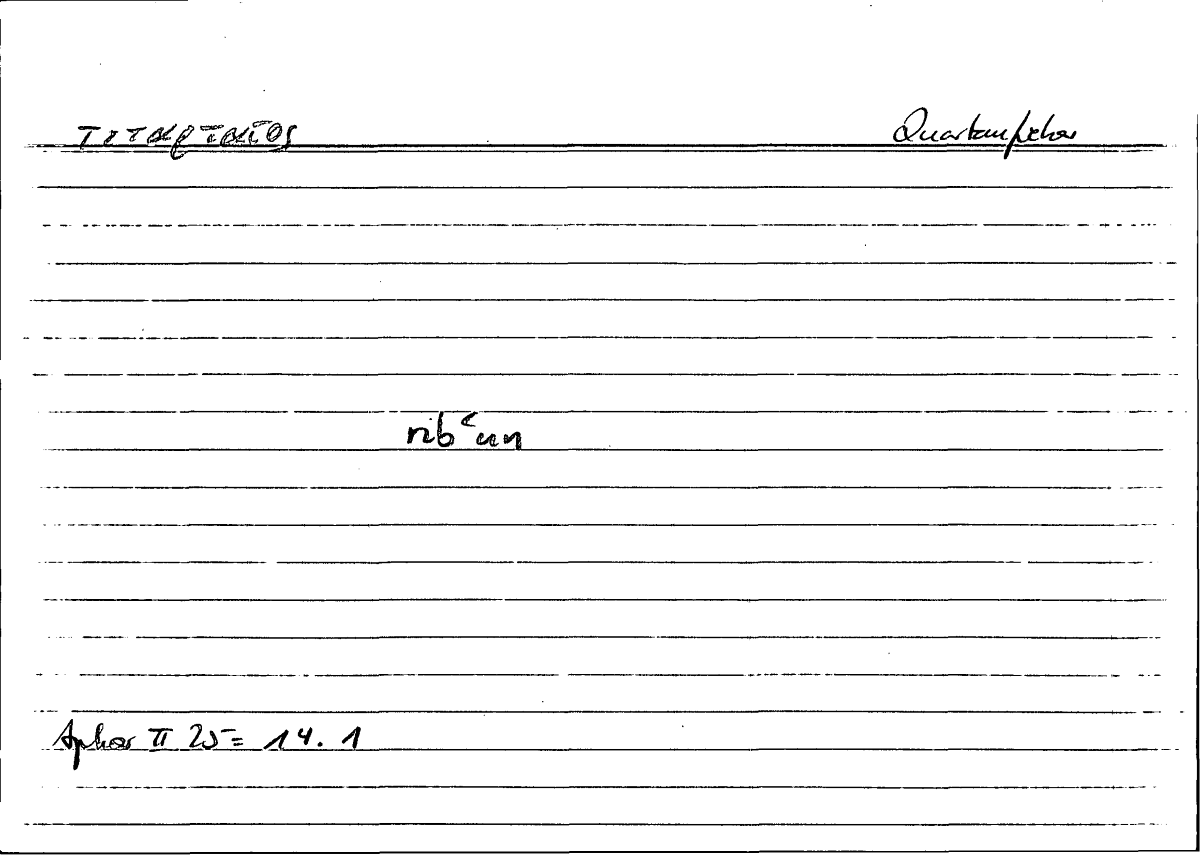 τεταρταῖος Quartanfieber
ribʿun
Aphor II 25 = 14. 1